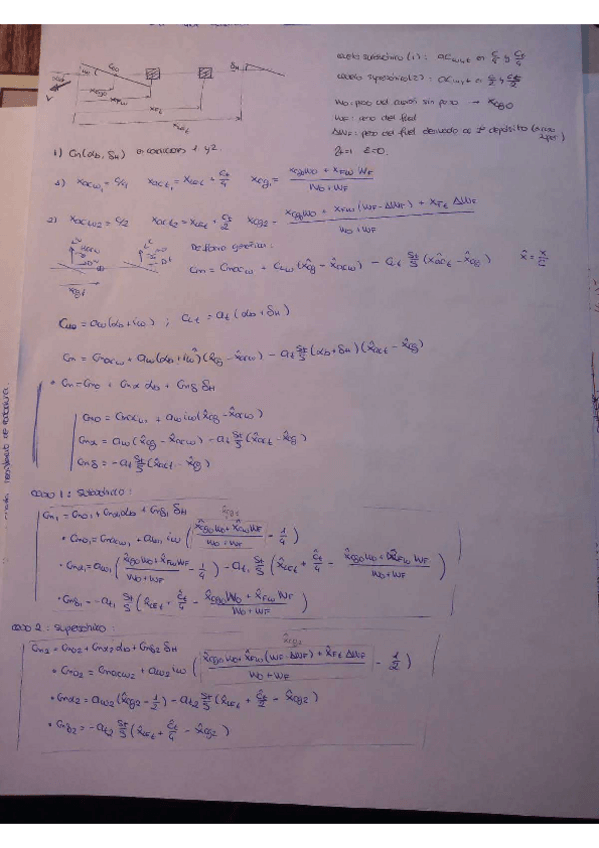 vuelo subsónico (1): ac w,t en c/4 y ct/4
vuelo supersónico (2): ac w,t en c/2 y ct/2
W0: peso del avión sin → x̂cg0
WF: peso del fuel
ΔWF: peso del fuel derivado al 2º depósito
ηt=1 ε=0.
1) Cm(αb, δH) en condiciones 1 y 2.
1) xacw1 = c/4 xact1 = xLEt + ct/4 xcg1 = (xcg0 W0 + xFW WF)/(W0 + WF)
2) xacw2 = c/2 xact2 = xLEt + ct/2 xcg2 = (xcg0 W0 + xFW (WF - ΔWF) + xFt ΔWF)/(W0 + WF)
De forma genérica:
Cm = Cmacw + CLw (x̂cg - x̂acw) - CLt St/S (x̂act - x̂cg) x̂ = x/c
CLw = aw(αb + iw) ; CLt = at (αb + δH)
Cm = Cmacw + aw(αb + iw)(x̂cg - x̂acw) - at St/S (αb + δH)(x̂act - x̂cg)
• Cm = Cm0 + Cmα αb + Cmδ δH
Cm0 = Cmacw + aw iw (x̂cg - x̂acw)
Cmα = aw (x̂cg - x̂acw) - at St/S (x̂act - x̂cg)
Cmδ = -at St/S (x̂act - x̂cg)
caso 1: Subsónico:
Cm1 = Cm01 + Cmα1 αb + Cmδ1 δH
x̂cg1
• Cm01 = Cmacw1 + aw1 iw ((x̂cg0 W0 + x̂FW WF)/(W0 + WF) - 1/4)
• Cmα1 = aw1 ((x̂cg0 W0 + x̂FW WF)/(W0 + WF) - 1/4) - at1 St/S (x̂LEt + ĉt/4 - (x̂cg0 W0 + x̂FW WF)/(W0 + WF))
• Cmδ1 = -at1 St/S (x̂LEt + ĉt/4 - (x̂cg0 W0 + x̂FW WF)/(W0 + WF))
caso 2: supersónico:
Cm2 = Cm02 + Cmα2 αb + Cmδ2 δH
x̂cg2
• Cm02 = Cmacw2 + aw2 iw ((x̂cg0 W0 + x̂FW (WF - ΔWF) + x̂Ft ΔWF)/(W0 + WF) - 1/2)
• Cmα2 = aw2 (x̂cg2 - 1/2) - at2 St/S (x̂LEt + ĉt/2 - x̂cg2)
• Cmδ2 = -at2 St/S (x̂LEt + ĉt/4 - x̂cg2)